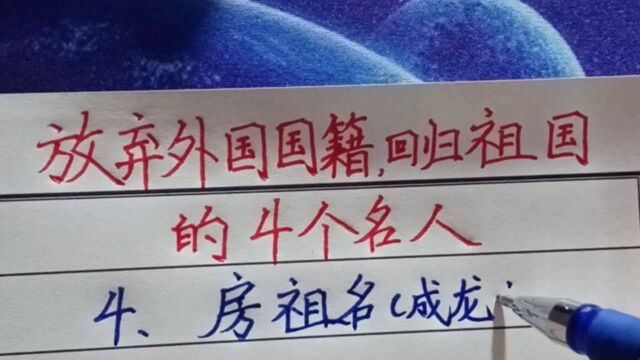 放弃外国国籍,回归祖国
的4个名人
4、房祖名(成龙